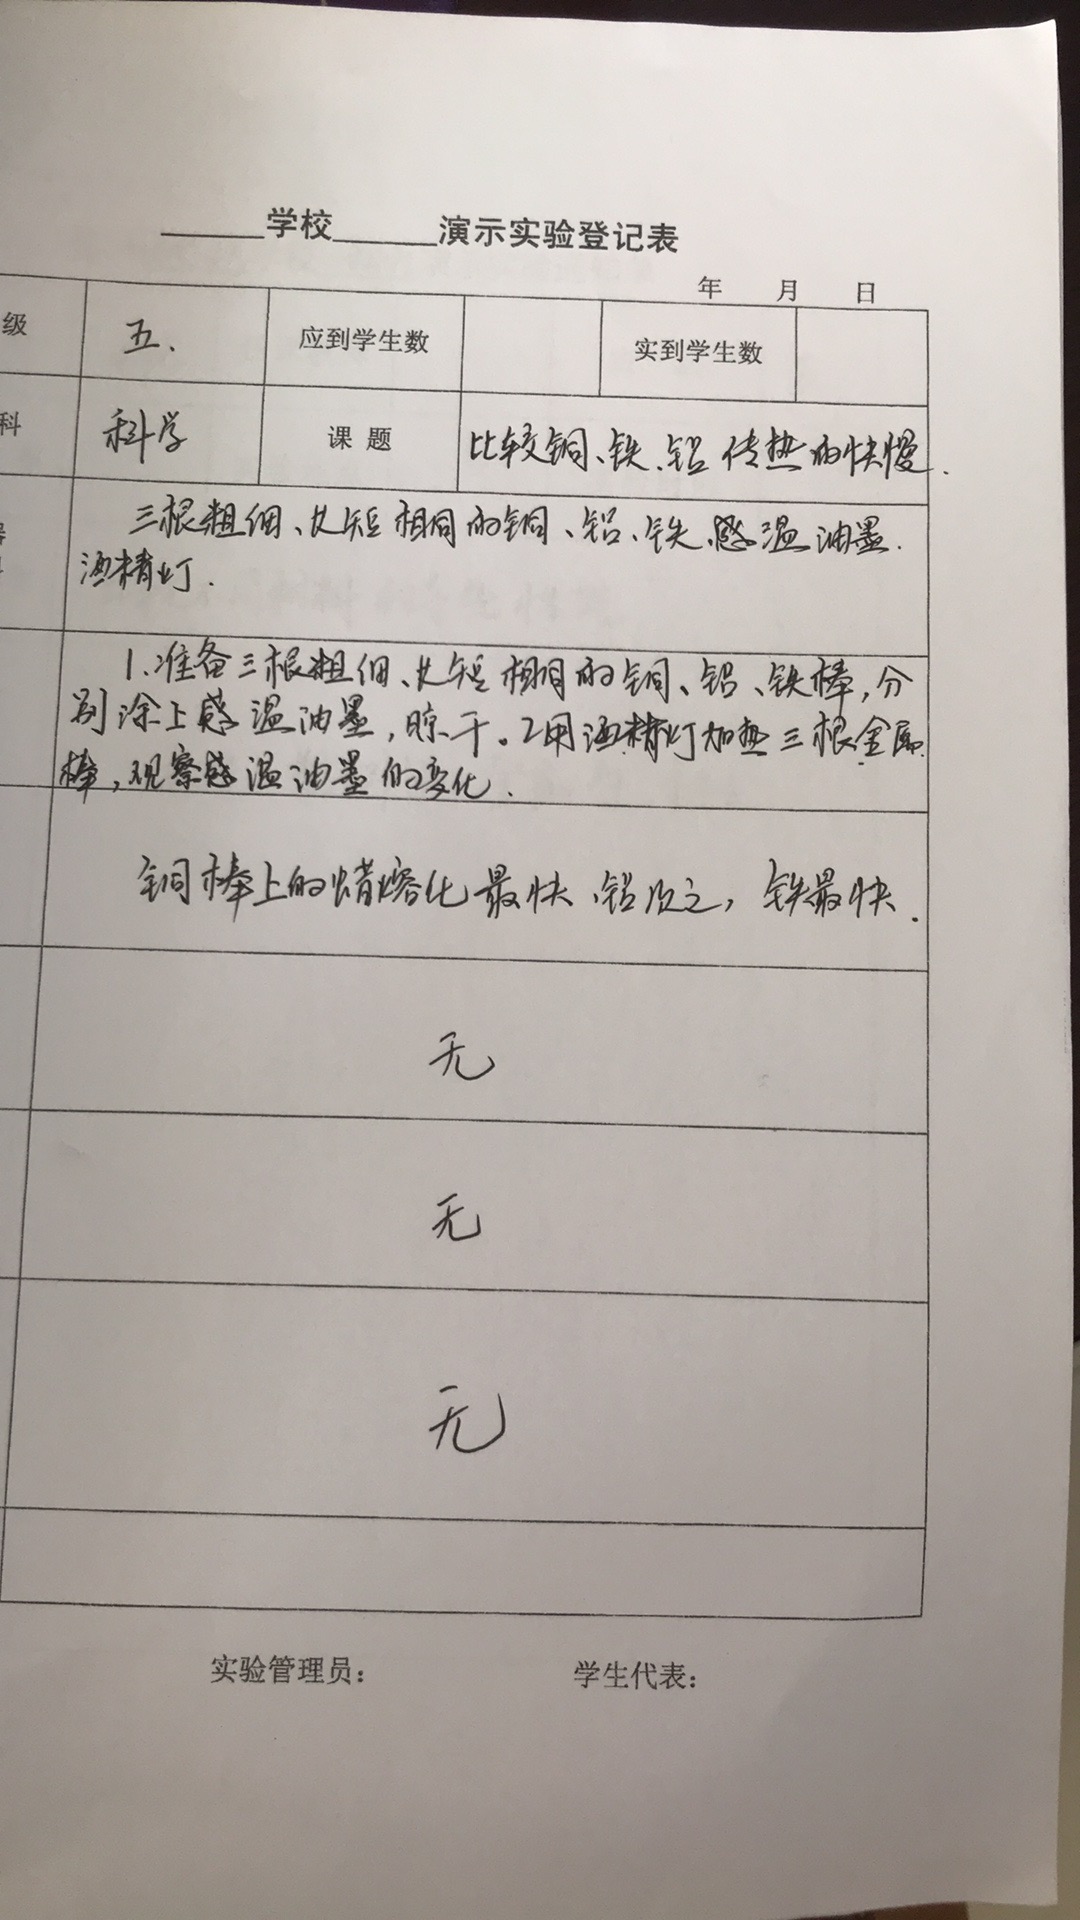 ______学校______演示实验登记表
年 月 日
级 五. 应到学生数 实到学生数
科 科学 课 题 比较铜、铁、铝传热的快慢.
三根粗细、长短相同的铜、铝、铁、感温油墨.
酒精灯.
1.准备三根粗细、长短相同的铜、铝、铁棒,分
别涂上感温油墨,晾干。2用酒精灯加热三根金属
棒,观察感温油墨的变化.
铜棒上的蜡熔化最快、铝次之,铁最快.
无
无
无
实验管理员: 学生代表: